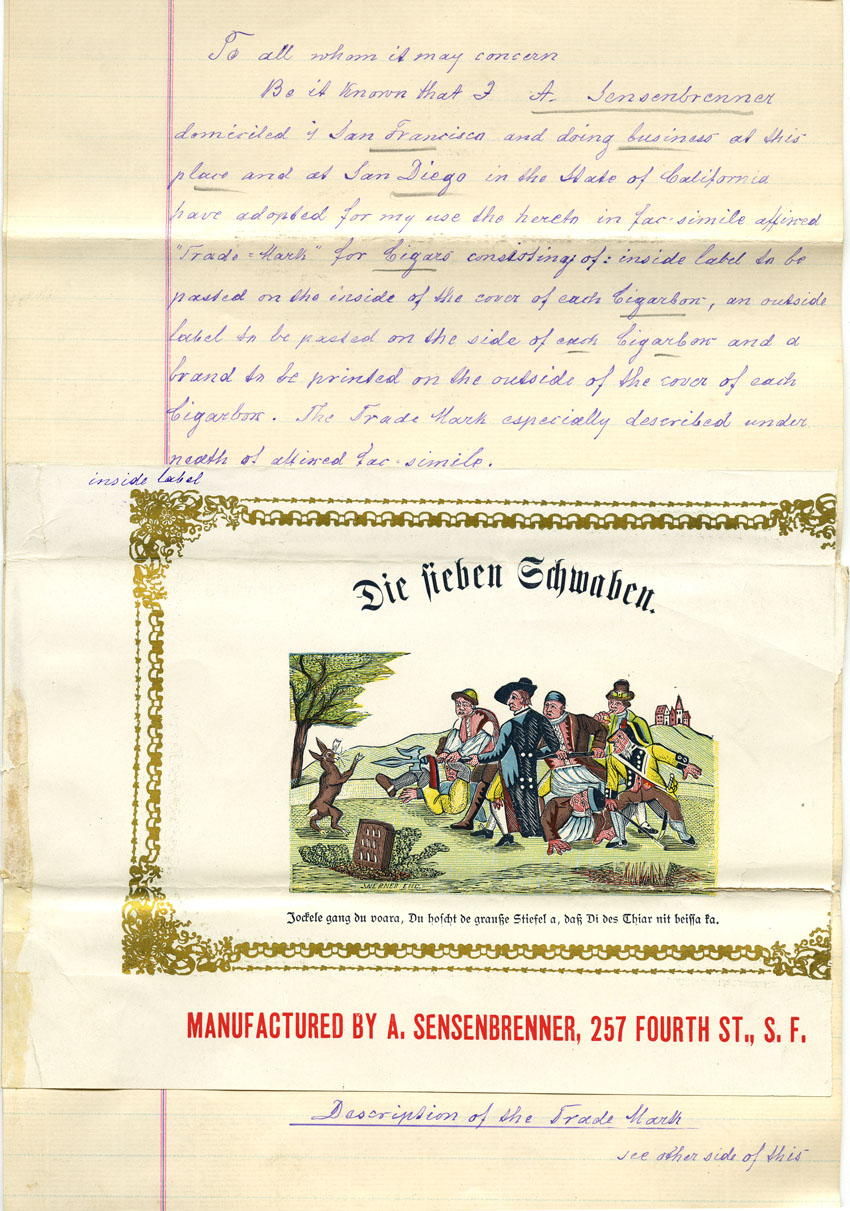 To all whom it may concern
Be it Known that I A. Sensenbrenner
domiciled i/ San Francisco and doing business at this
place and at San Diego in the State of California
have adopted for my use the hereto in fac-simile affixed
"Trade=Mark" for Cigars consisting of: inside label to be
pasted on the inside of the cover of each Cigarbox, an outside
label to be pasted on the side of each Cigarbox and a
brand to be printed on the outside of the cover of each
Cigarbox. The Trade Mark especially described under
neath of affixed fac-simile.
inside label
Die sieben Schwaben.
Jockele gang du voara, Du hoscht de grauße Stiefel a, daß Di des Thiar nit beissa ka.
MANUFACTURED BY A. SENSENBRENNER, 257 FOURTH ST., S. F.
Description of the Trade Mark
see other side of this